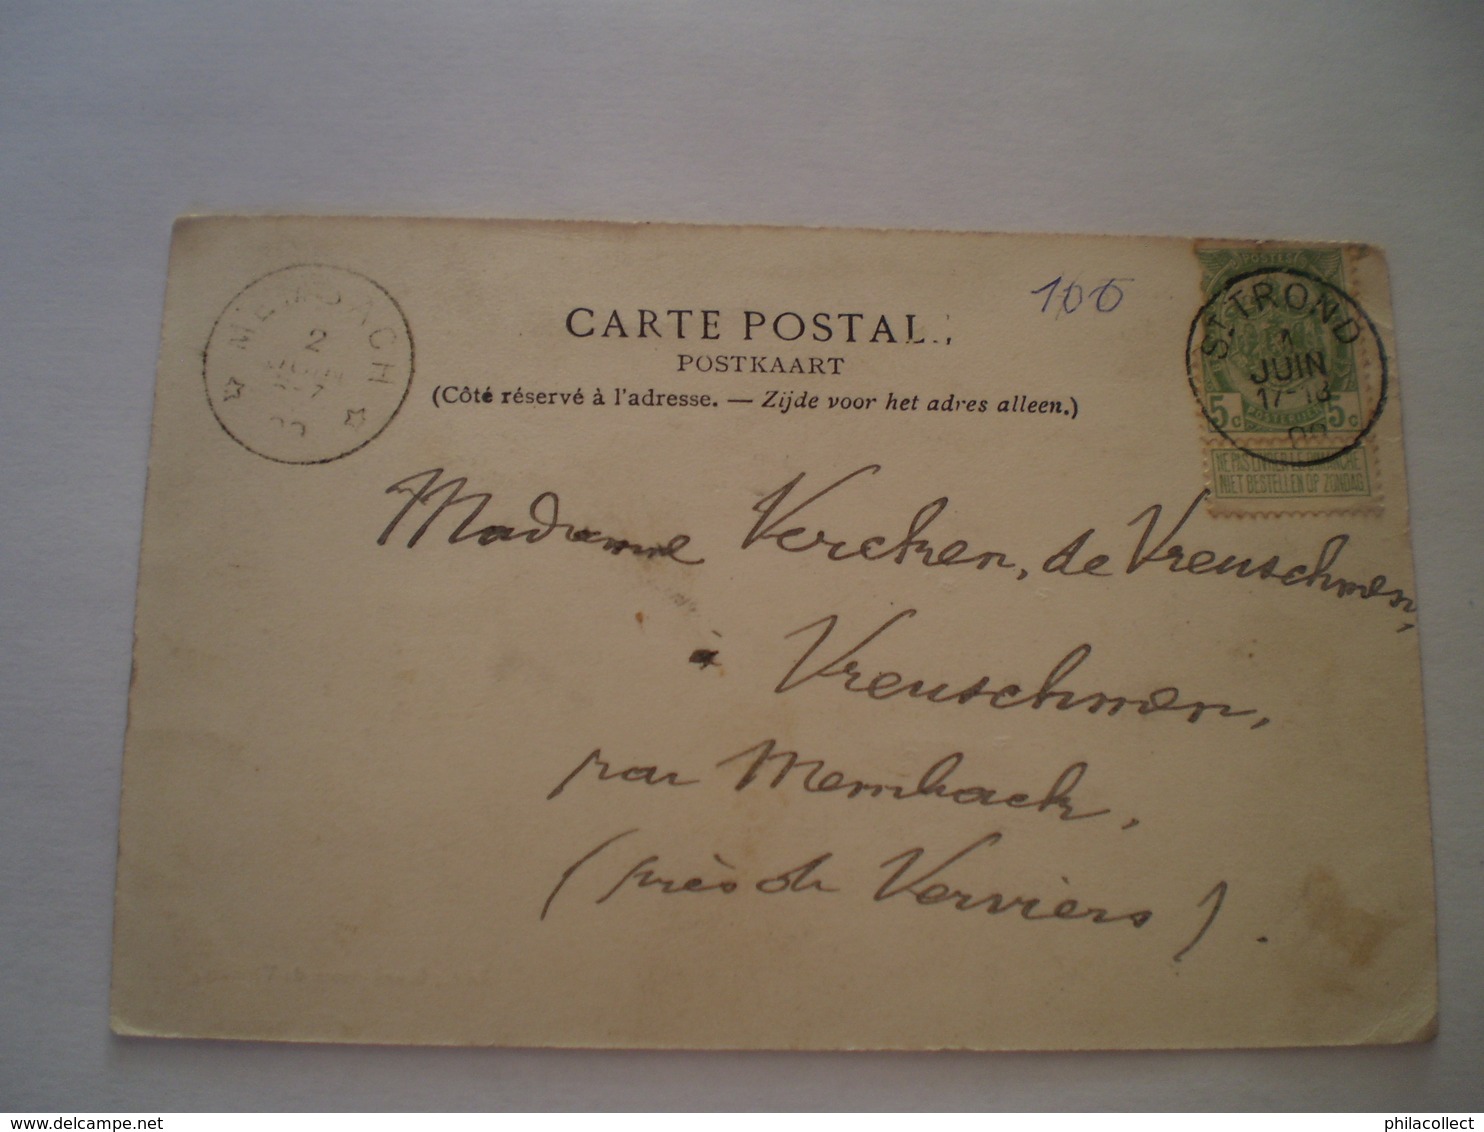 MEMBACH
2
100
POSTES
ST TROND
1
JUIN
17-18
5c 5c
NE PAS LIVRER LE DIMANCHE
NIET BESTELLEN OP ZONDAG
CARTE POSTALE
POSTKAART
(Côté réservé à l'adresse. — Zijde voor het adres alleen.)
Madame Vercken, de Vreuschmen,
à Vreuschmen,
par Membach,
(près de Verviers).
delcampe.net
philacollect